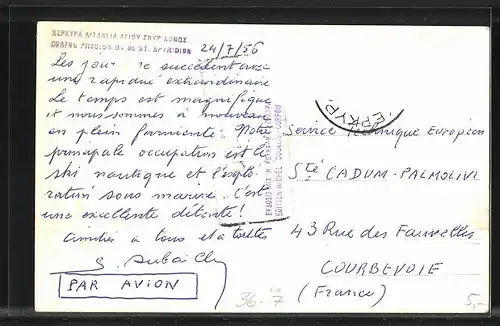 ΚΕΡΚΥΡΑ ΛΙΤΑΝΕΙΑ ΑΓΙΟΥ ΣΠΥΡΙΔΩΝΟΣ
CORFOU PROCESSION DE ST. SPYRIDION
24/7/56
Les jours se succèdent avec
une rapidité extraordinaire
Le temps est magnifique
et nous sommes à nouveau
en plein farniente. Notre
principale occupation est le
ski nautique et l'explo-
ration sous marine. C'est
une excellente détente!
Amitiés à tous et à toutes
PAR AVION
ΚΕΡΚΥΡ
Service Technique Européen
Sté CADUM-PALMOLIVE
43 Rue des Fauvelles
COURBEVOIE
(France)
36-7
5,-